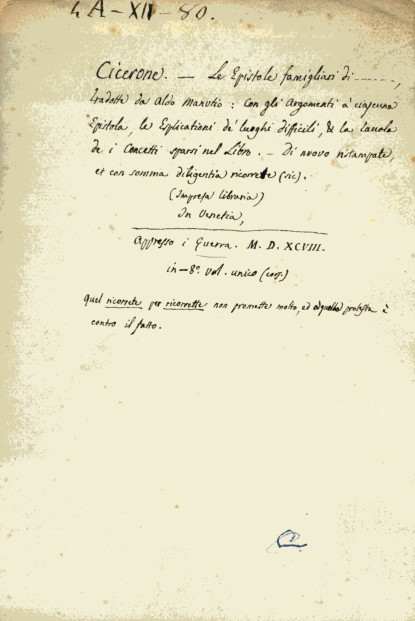 4 A-XII-80.
Cicerone. — Le Epistole famigliari di -----,
tradotte da Aldo Manutio: con gli Argomenti a ciascuna
Epistola, le Esplicationi de' luoghi difficili, & la tavola
de i Concetti sparsi nel Libro. — Di nuovo ristampate,
et con somma diligentia ricorrete (sic).
(Impresa libraria)
In Venetia,
Appresso i Guerra. M. D. XCVIII.
in-8°. vol. unico (cors.)
Quel ricorrete per ricorrette non promette molto, ed protesta è
contro il fatto.